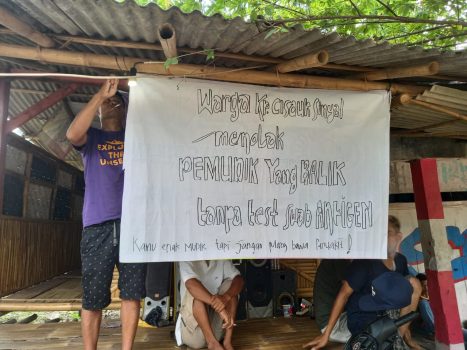 Warga Kp Cisauk Sinyal
menolak
PEMUDIK Yang BALIK
tanpa test Swab ANTIGEN
Kamu enak mudik tapi jangan pulang bawa penyakit!
EXPLORE
THE